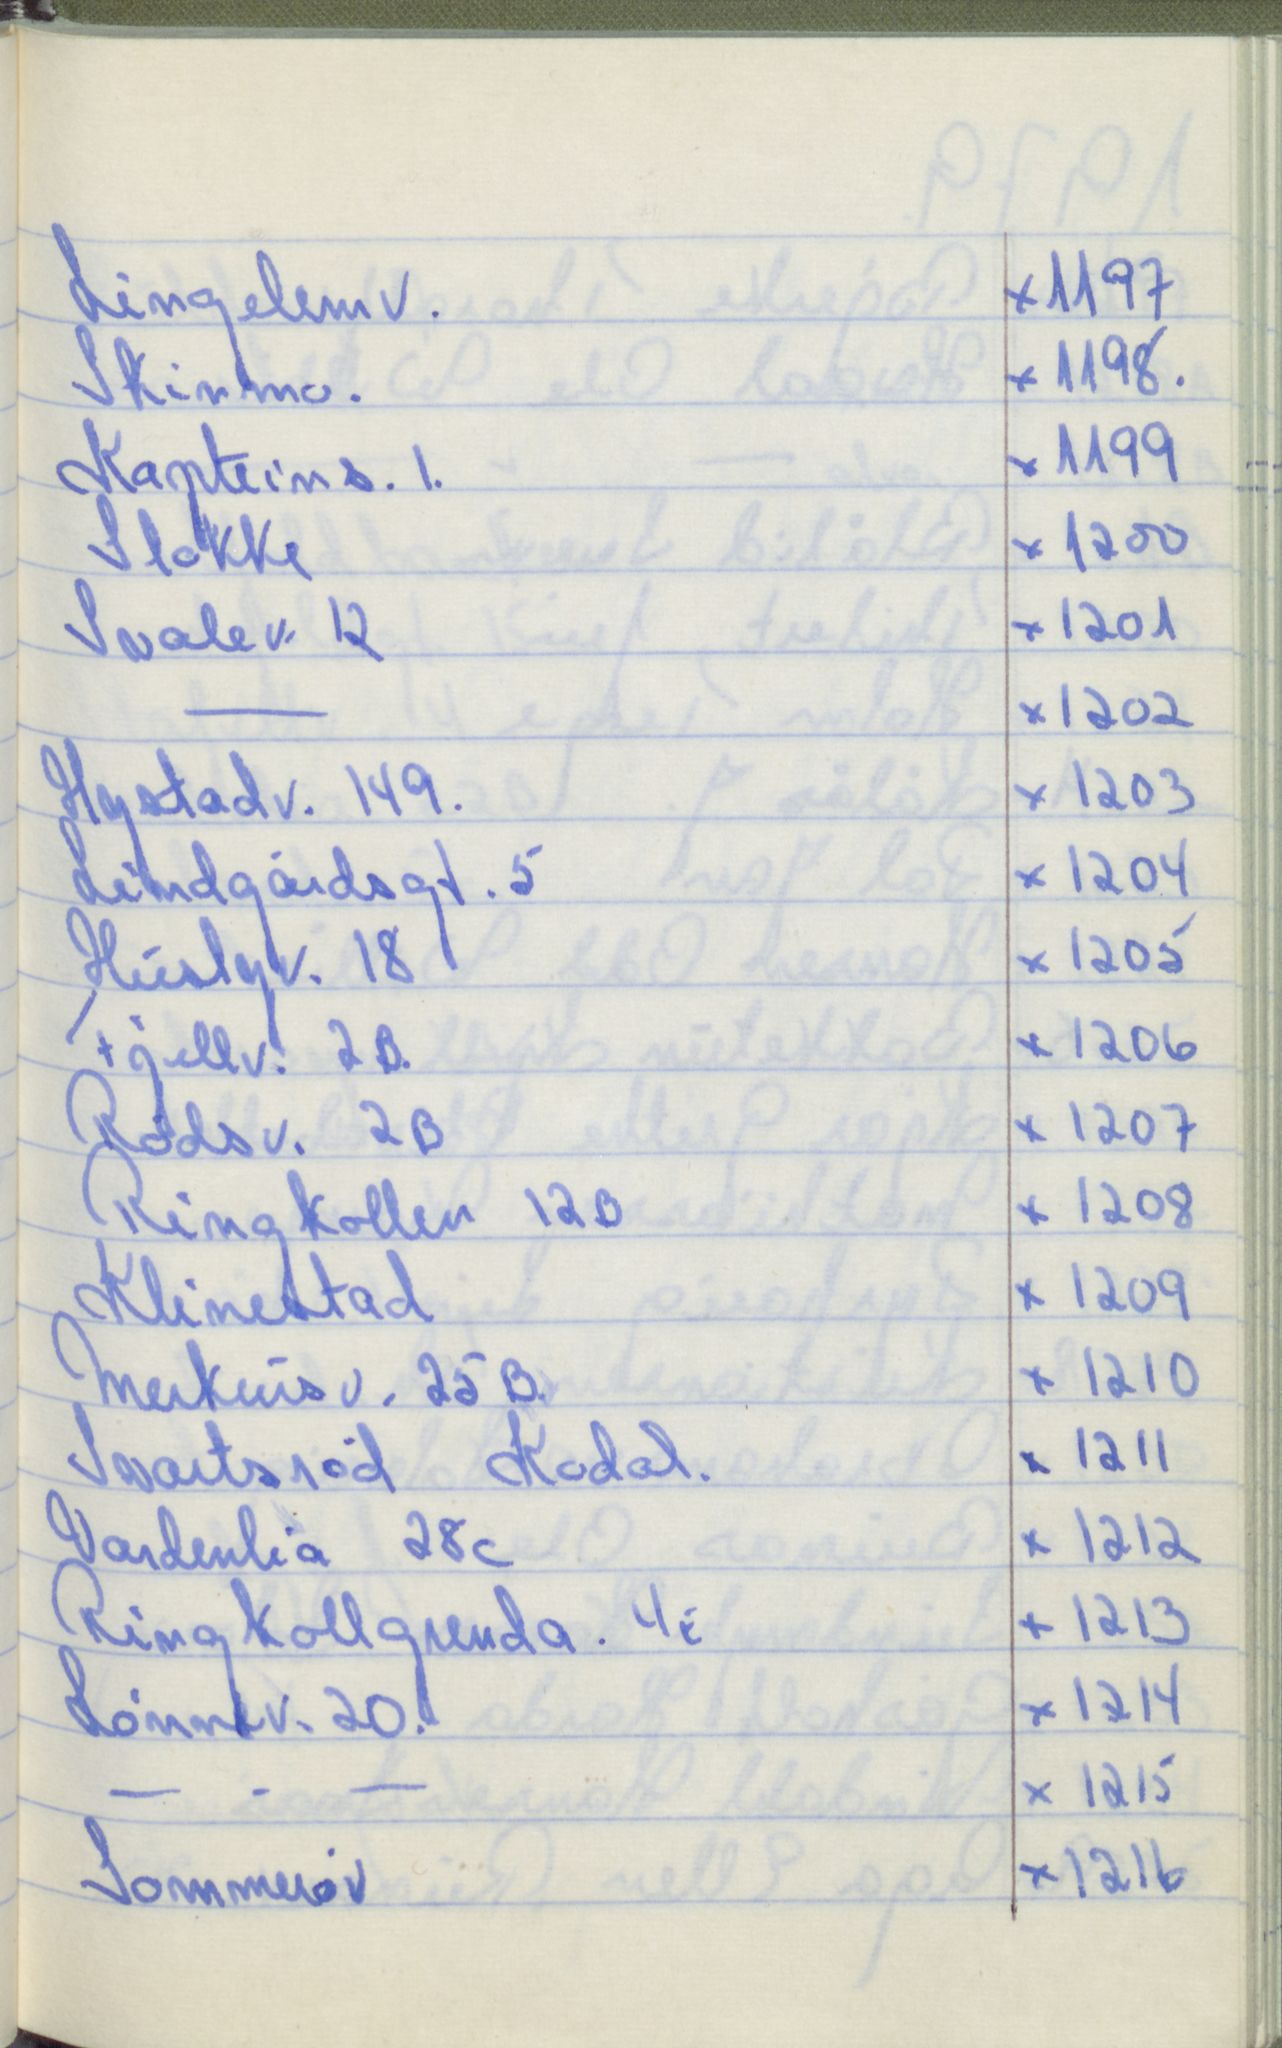 Lingelemv. x 1197
Skinmo. x 1198.
Kapteins. 1. x 1199
Slokke x 1200
Svalev. 12 x 1201
— x 1202
Hystadv. 149. x 1203
Lindgårdsgt. 5 x 1204
Húsbyv. 18 x 1205
+jellv. 2B. x 1206
Rødsv. 2B x 1207
Ringkollen 12B x 1208
Klinestad x 1209
Merkúrsv. 25B. x 1210
Svartsrød Kodal. x 1211
Vardenlia 28c x 1212
Ringkollgrenda. 4c x 1213
Lønnev. 20. x 1214
— - — x 1215
Sommerøv x 1216